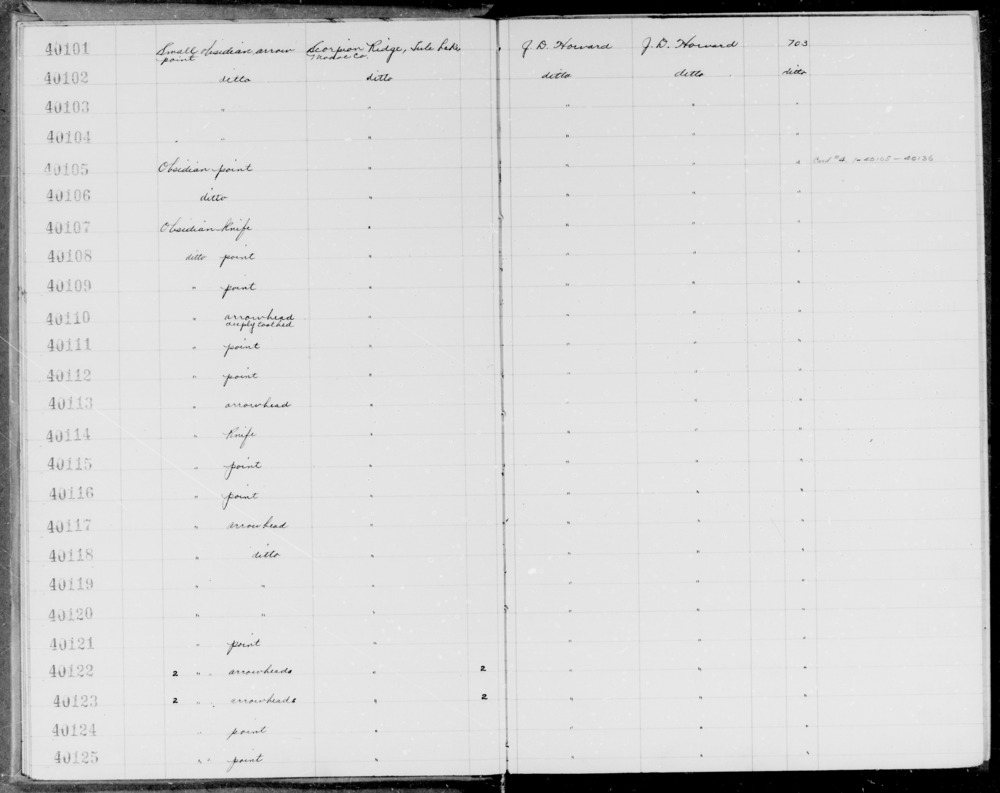 40101 Small obsidian arrow point Scorpion Ridge, Tule Lake, Modoc Co. J. D. Howard J. D. Howard 703
40102 ditto ditto ditto ditto ditto
40103 " " " " "
40104 " " " " "
40105 Obsidian point " " " " Card #4 40105 - 40136
40106 ditto " " " "
40107 Obsidian Knife " " " "
40108 ditto point " " " "
40109 " point " " " "
40110 " arrowhead deeply toothed " " " "
40111 " point " " " "
40112 " point " " " "
40113 " arrowhead " " " "
40114 " Knife " " " "
40115 " point " " " "
40116 " point " " " "
40117 " arrowhead " " " "
40118 " ditto " " " "
40119 " " " " " "
40120 " " " " " "
40121 " point " " " "
40122 2 " arrowheads " 2 " " "
40123 2 " arrowheads " 2 " " "
40124 " point " " " "
40125 " point " " " "